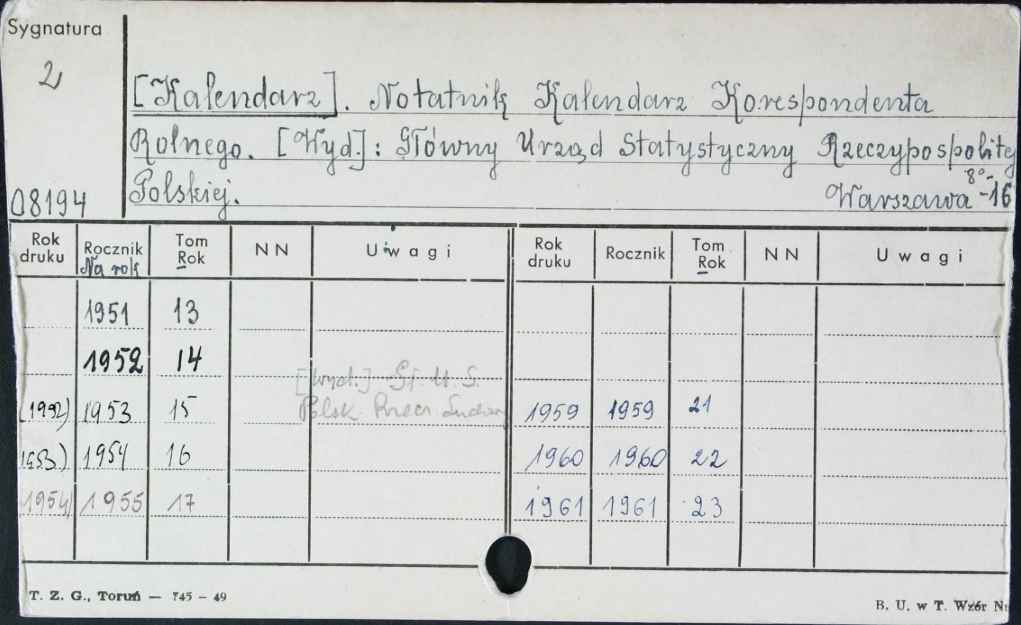 Sygnatura
2
[Kalendarz]. Notatnik Kalendarz Korespondenta
Rolnego. [Wyd.]: Główny Urząd Statystyczny Rzeczypospolitej
8°
Polskiej. Warszawa -16
08194
Rok druku Rocznik Na rok Tom Rok NN Uwagi Rok druku Rocznik Tom Rok NN Uwagi
1951 13
1952 14
[Wyd.] Gł. U. S.
(1952) 1953 15 Polsk Rzecz 1959 1959 21
1953) 1954 16 1960 1960 22
(1954) 1955 17 1961 1961 23
T. Z. G., Toruń — 745 - 49
B. U. w T. Wzór Nr